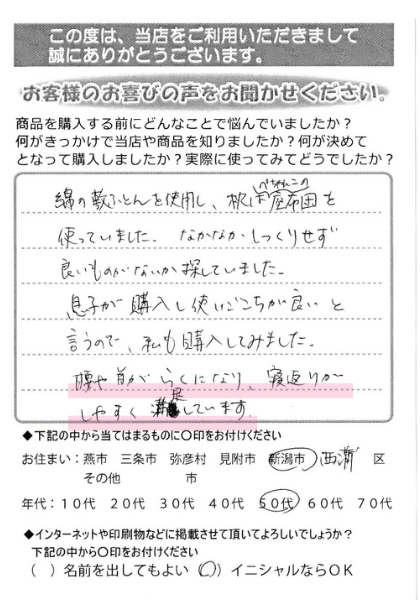 この度は、当店をご利用いただきまして
誠にありがとうございます。
お客様のお喜びの声をお聞かせください。
商品を購入する前にどんなことで悩んでいましたか？
何がきっかけで当店や商品を知りましたか？何が決めて
となって購入しましたか？実際に使ってみてどうでしたか？
ぺちゃんこの
綿の敷ふとんを使用し、枕は座布団を
使っていました。なかなかしっくりせず
良いものがないか探していました。
息子が購入し使いごこちが良いと
言うので、私も購入してみました。
腰や首がらくになり、寝返りが
しやすく満足しています。
◆下記の中から当てはまるものに〇印をお付けください
お住まい：燕市 三条市 弥彦村 見附市 新潟市 西蒲 区
その他 市
年代：１０代 ２０代 ３０代 ４０代 ５０代 ６０代 ７０代
◆インターネットや印刷物などに掲載させて頂いてよろしいでしょうか？
下記の中から〇印をお付けください
（ ）名前を出してもよい （〇）イニシャルならＯＫ